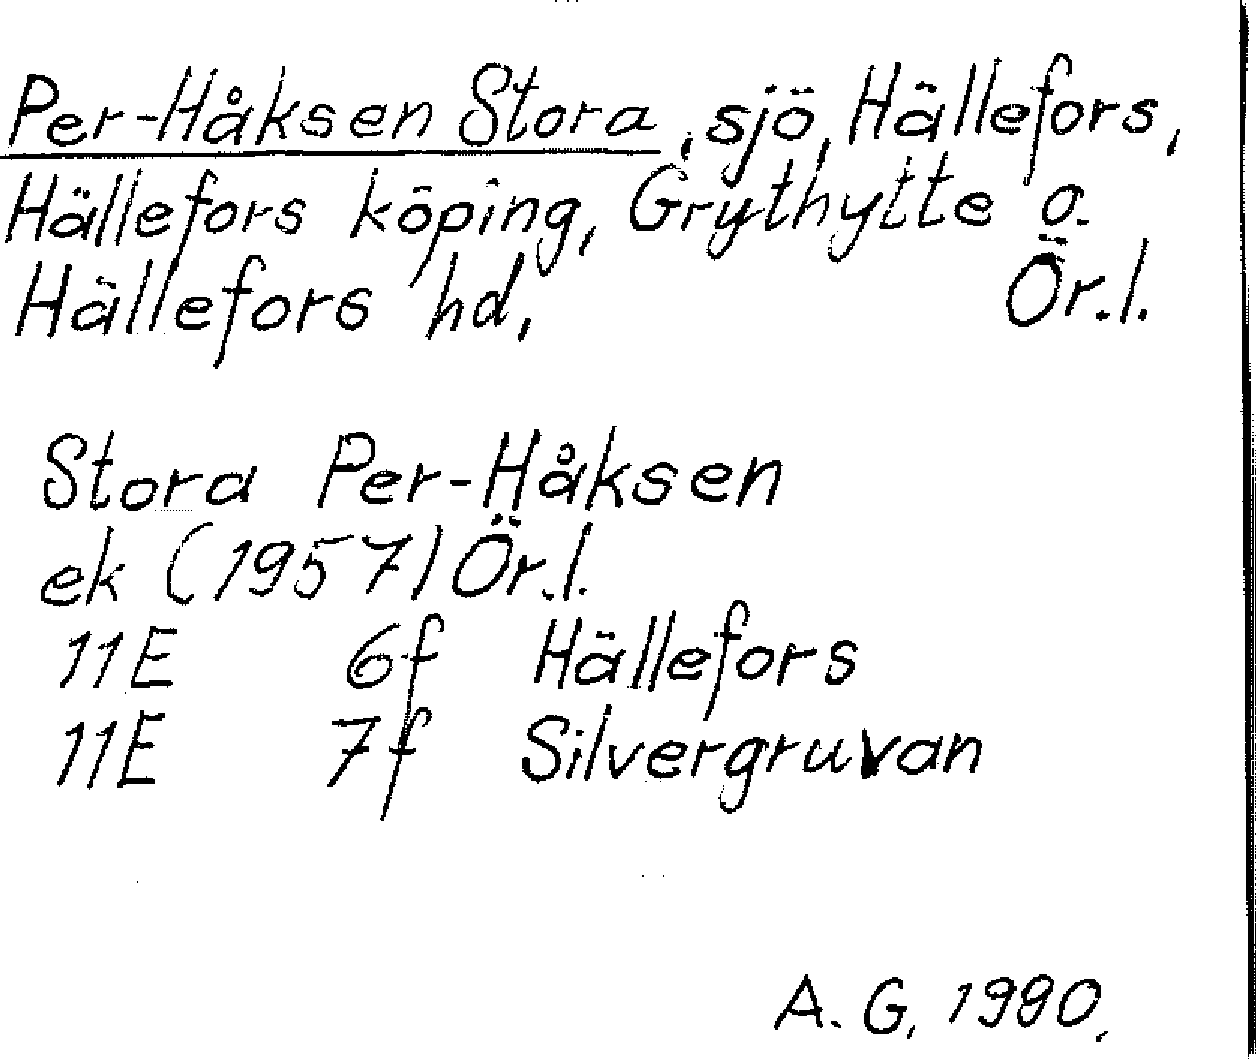 Per-Håksen Stora, sjö, Hällefors,
Hällefors köping, Grythytte o.
Hällefors hd, Ör.l.
Stora Per-Håksen
ek (1957) Ör.l.
11E 6f Hällefors
11E 7f Silvergruvan
A. G, 1980.